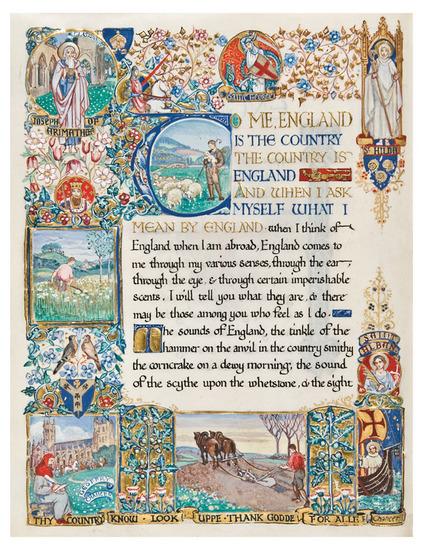 JOSEPH OF
ARIMATHEA
SAINT GEORGE
ST HILDA
TO ME, ENGLAND
IS THE COUNTRY
THE COUNTRY IS
ENGLAND
AND WHEN I ASK
MYSELF WHAT I
MEAN BY ENGLAND when I think of
England when I am abroad, England comes to
me through my various senses, through the ear,
through the eye, & through certain imperishable
scents. I will tell you what they are, & there
may be those among you who feel as I do.
The sounds of England, the tinkle of the
hammer on the anvil in the country smithy
the corncrake on a dewy morning, the sound
of the scythe upon the whetstone, & the sight
SAINT
ALBAN
GEOFFREY
CHAUCER
THY COUNTRY KNOW · LOOK UPPE · THANK GODDE FOR ALLE
Chaucer